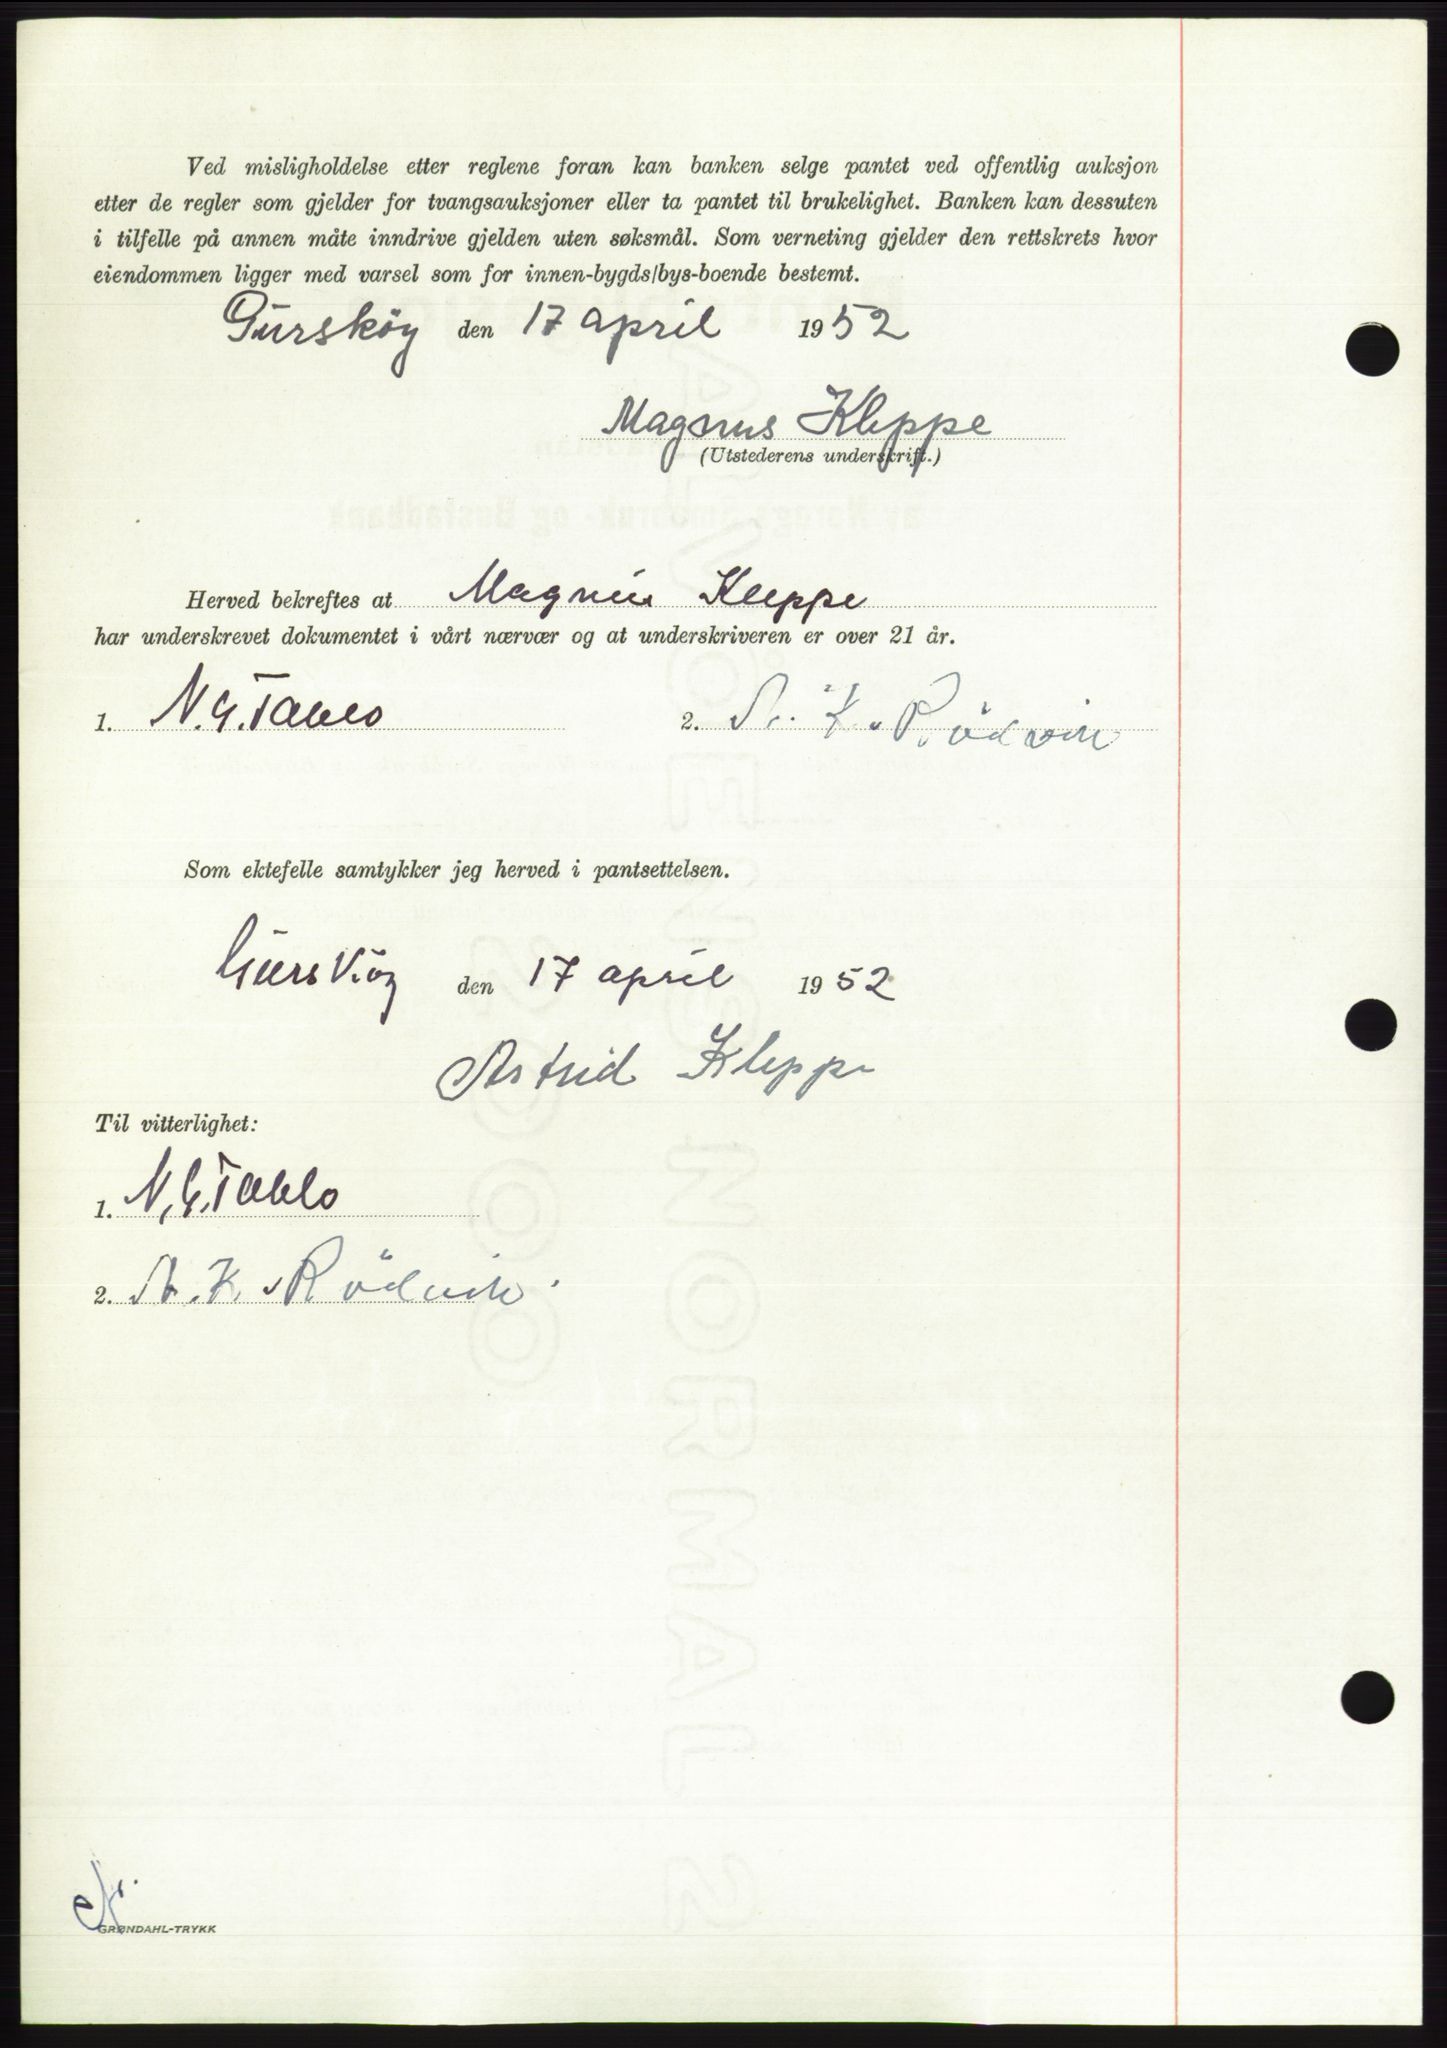 Ved misligholdelse etter reglene foran kan banken selge pantet ved offentlig auksjon
etter de regler som gjelder for tvangsauksjoner eller ta pantet til brukelighet. Banken kan dessuten
i tilfelle på annen måte inndrive gjelden uten søksmål. Som verneting gjelder den rettskrets hvor
eiendommen ligger med varsel som for innen-bygds/bys-boende bestemt.
Gursköy den 17 april 1952
Magnus Kleppe
(Utstederens underskrift.)
Herved bekreftes at Magnus Kleppe
har underskrevet dokumentet i vårt nærvær og at underskriveren er over 21 år.
1. N. G. 2. A. K. Rödvik
Som ektefelle samtykker jeg herved i pantsettelsen.
Gursköy den 17 april 1952
Astrid Kleppe
Til vitterlighet:
1. N. G.
2. A. K. Rödvik
GRØNDAHL-TRYKK